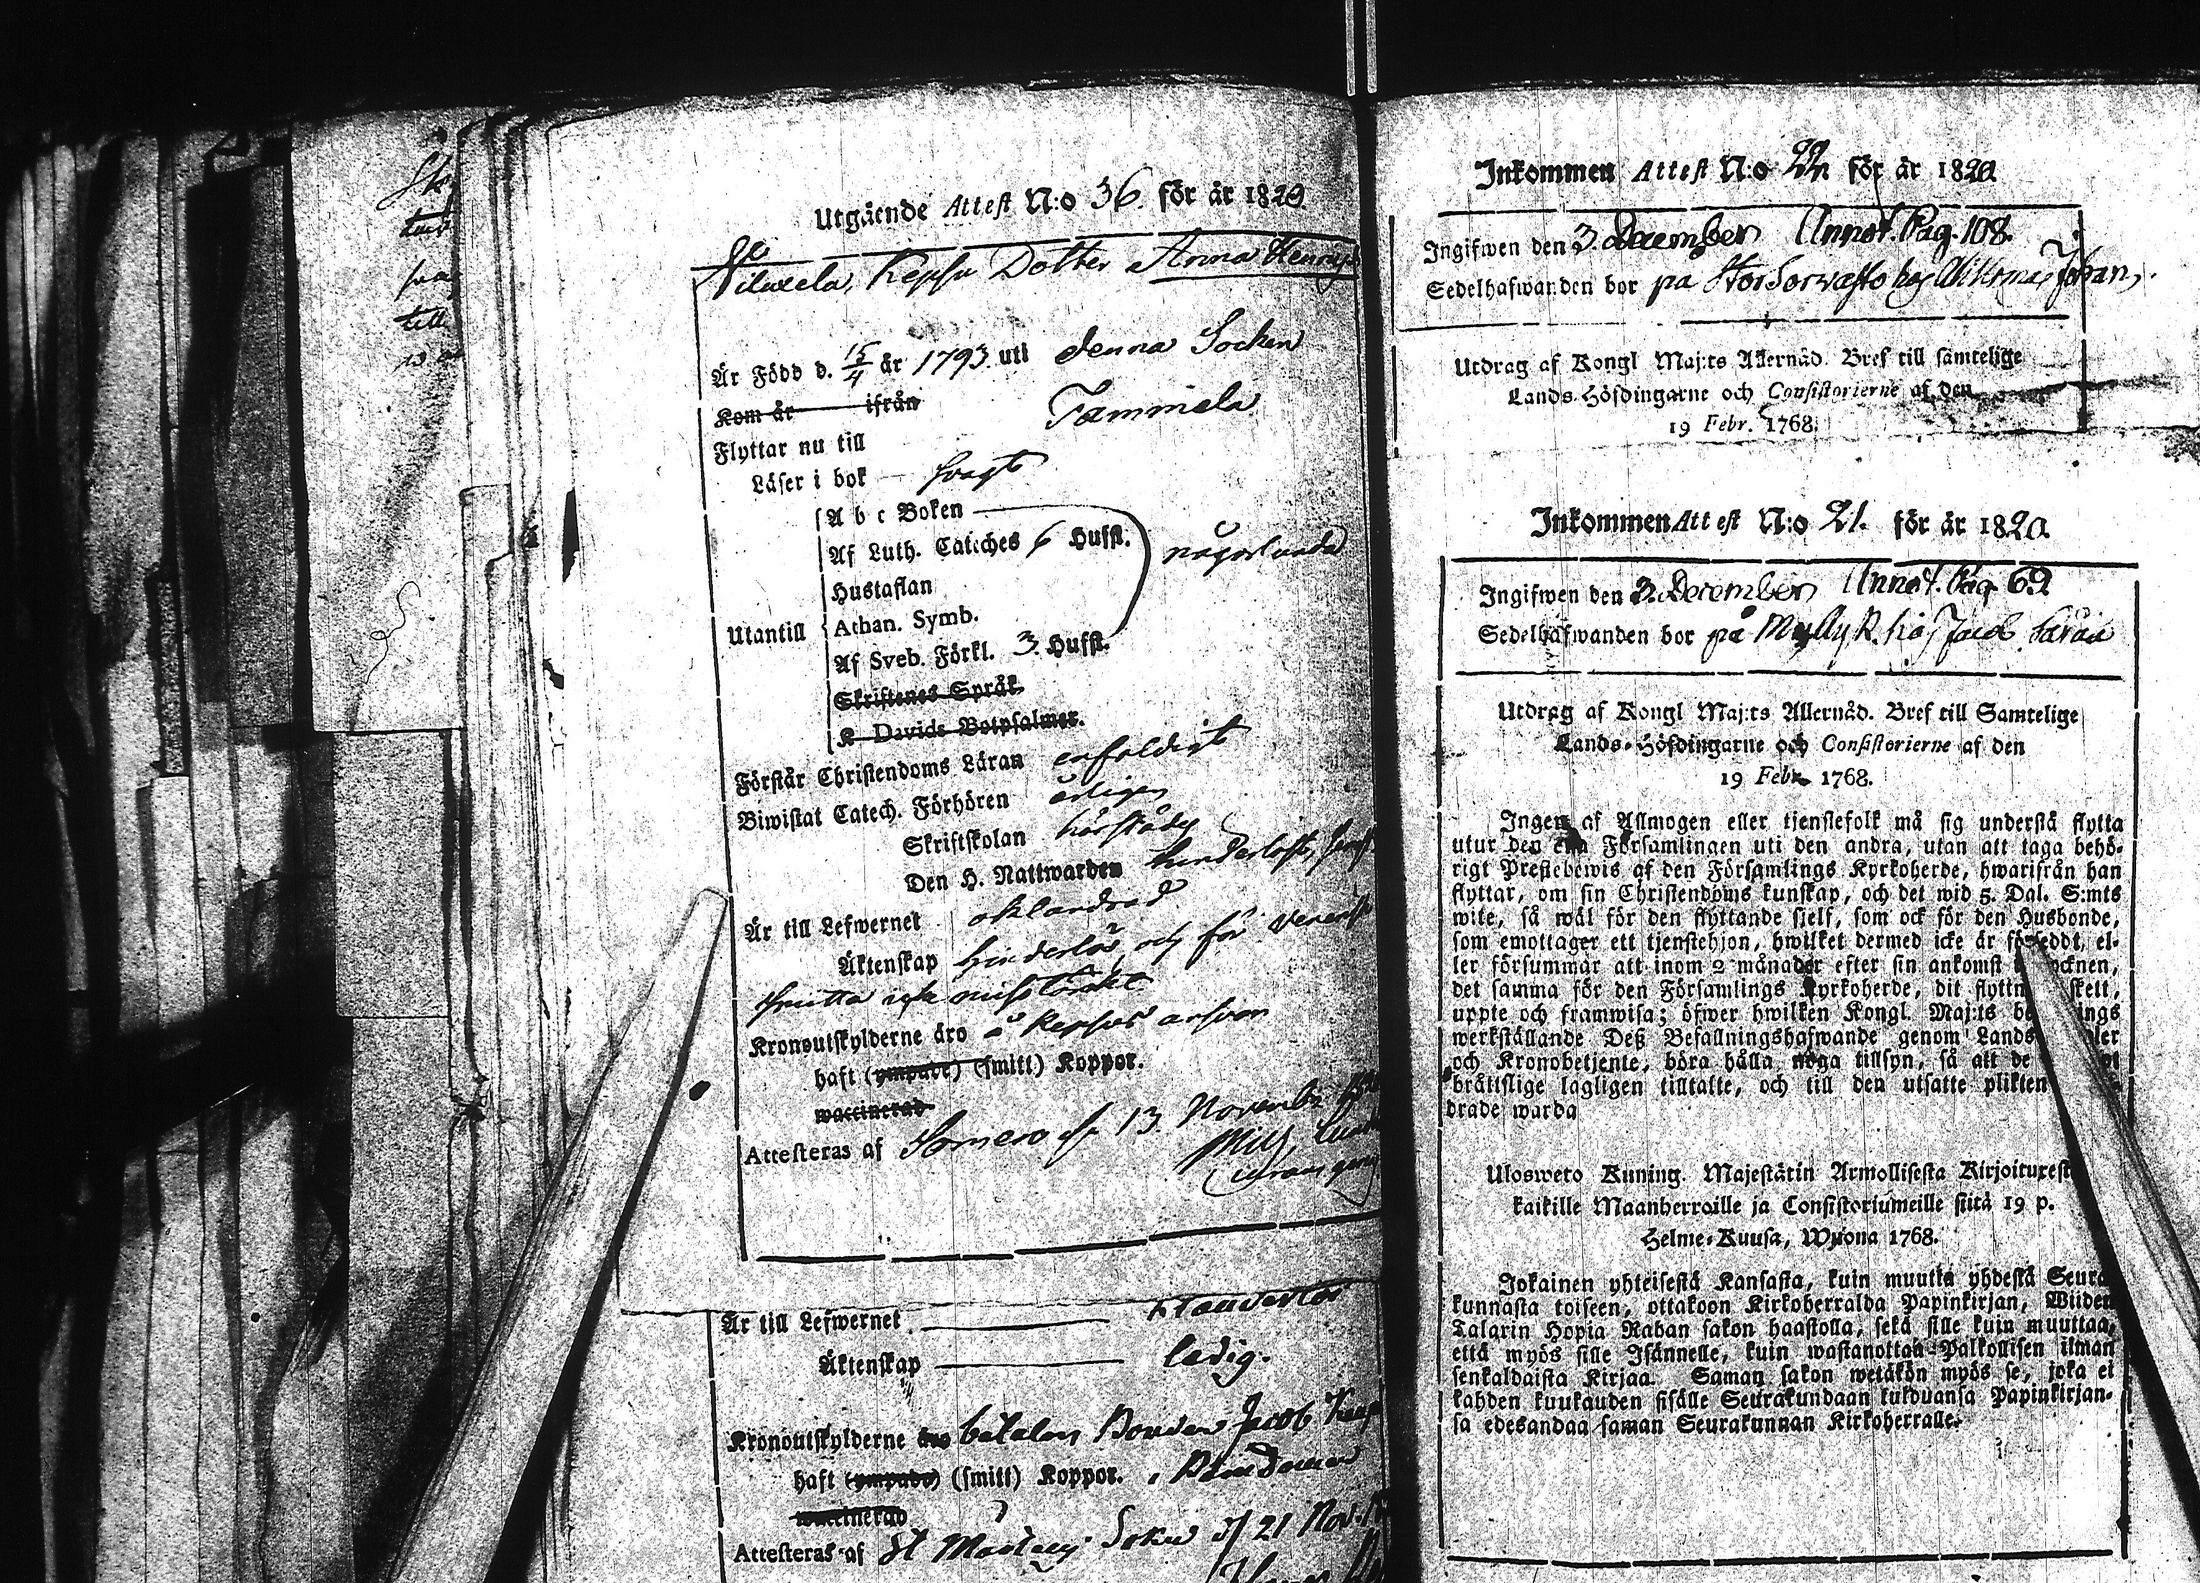 Utgående Attest N:o 36 för år 1820
Dotter Anna Henrics
Är Född d. 15/4 år 1793 uti denna Socken
Kom år ifrån
Flyttar nu till Tammela
Läser i bok svagt
A b c Boken
Af Luth. Catiches 6 Hufst. någorlunda
Hustaflan
Utantill Athan. Symb.
Af Sveb. Förkl. 3 Hufst.
Skriftenes Språk
K Davids Botpsalmer.
Förstår Christendoms Läran enfaldigt
Biwistat Catech. Förhören årligen
Skriftskolan härstädes
Den H. Nattwarden
Är till Lefwernet oklandrad
Äktenskap hinderlös och för
smitta icke misstänkt
Kronoutskylderne äro
haft (ympade) (smitt) Koppor.
waccinerad
Attesteras af Somero d. 13 Novembr
Är till Lefwernet
Äktenskap ledig.
Kronoutskylderne äro betalas Bonden Jacob
haft (ympade) (smitt) Koppor.
waccinerad
Attesteras af St Mårtens Soken d. 21 Nov.
Inkommen Attest N:o 22 för år 1820
Ingifwen den 3 December Annot. Pag. 108.
Sedelhafwanden bor på
Utdrag af Kongl Maj:ts Allernåd. Bref till samtelige
Lands-Höfdingarne och Consistorierne af den
19 Febr. 1768.
Inkommen Attest N:o 21. för år 1820
Ingifwen den 3 December Annot. Pag. 69
Sedelhafwanden bor på hos Jacob
Utdrag af Kongl Maj:ts Allernåd. Bref till Samtelige
Lands-Höfdingarne och Consistorierne af den
19 Febr. 1768.
Ingen af Allmogen eller tjenstefolk må sig understå flytta
utur den ena Församlingen uti den andra, utan att taga behö-
rigt Prestebewis af den Församlings Kyrkoherde, hwarifrån han
flyttar, om sin Christendoms kunskap, och det wid 5. Dal. S:mts
wite, så wäl för den flyttande sjelf, som ock för den Husbonde,
som emottager ett tjenstehjon, hwilket dermed icke är försedt, el-
ler försummar att inom 2 månader efter sin ankomst
det samma för den Församlings Kyrkoherde, dit flyttn skett,
uppte och framwisa; öfwer hwilken Kongl. Maj:ts
werkställande Deß Befallningshafwande genom Lands
och Kronobetjente, böra hålla noga tillsyn, så att de
bråttslige lagligen tilltalte, och till den utsatte plikten
drade warda
Ulosweto Kuning. Majestätin Armollisesta Kirjoituxest
kaikille Maanherroille ja Consistoriumeille siitä 19 p.
Helme-Kuusa, Wuona 1768.
Jokainen yhteisestä Kansasta, kuin muutta yhdestä Seura-
kunnasta toiseen, ottakoon Kirkoherralda Papinkirjan, Wiiden
Talarin Hopia Rahan sakon haastolla, sekä sille kuin muuttaa,
että myös sille Isännelle, kuin wastanottaa Palkollisen ilman
senkaldaista Kirjaa. Saman sakon wetäkön myös se, joka ei
kahden kuukauden sisälle Seurakundaan tulduansa Papinkirjan-
sa edesandaa saman Seurakunnan Kirkoherralle.